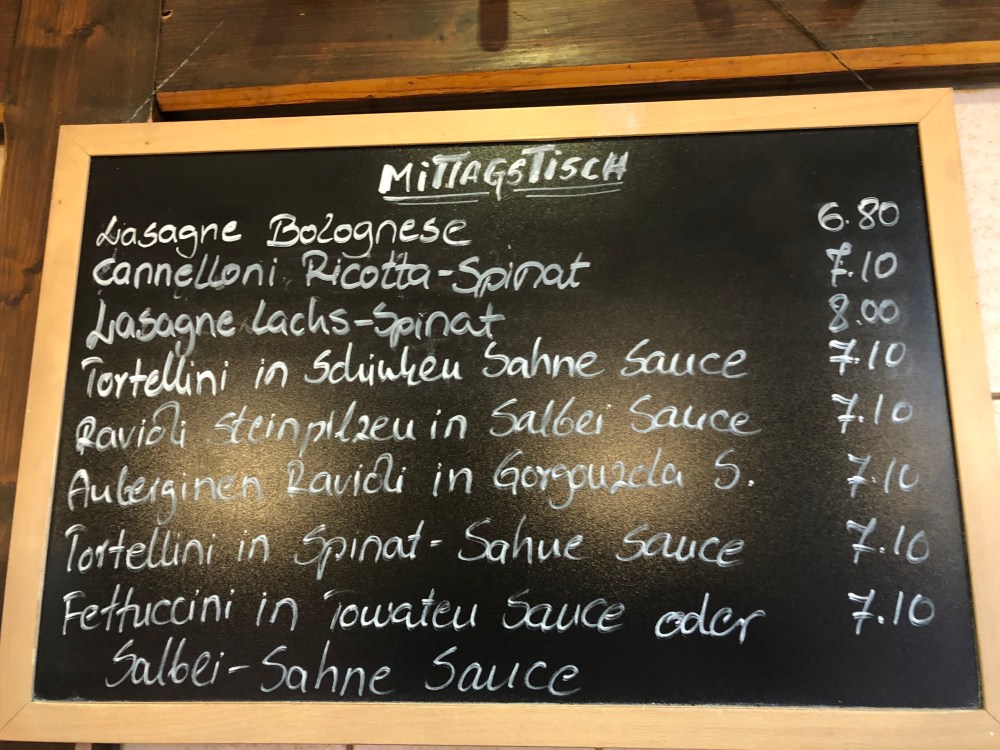 MiTTAGSTiSCH
Lasagne Bolognese 6.80
Cannelloni Ricotta-Spinat 7.10
Lasagne Lachs-Spinat 8.00
Tortellini in Schinken Sahne Sauce 7.10
Ravioli Steinpilzen in Salbei Sauce 7.10
Auberginen Ravioli in Gorgonzola S. 7.10
Tortellini in Spinat-Sahne Sauce 7.10
Fettuccini in Tomaten Sauce oder 7.10
Salbei-Sahne Sauce